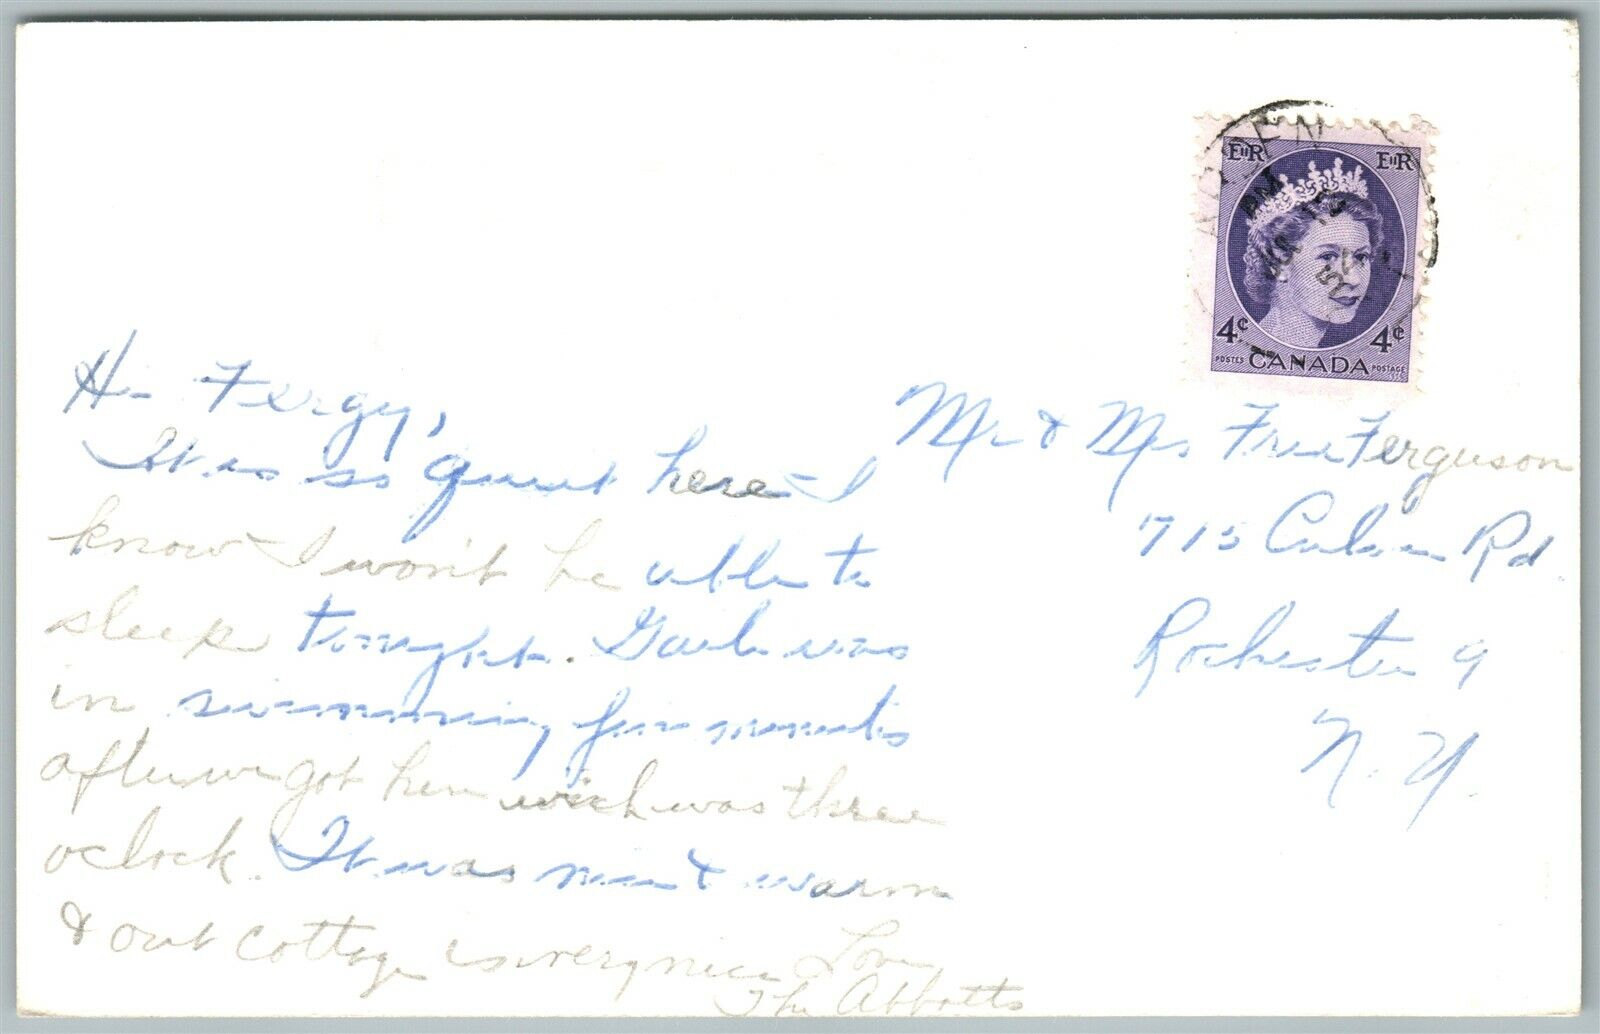 EIIR EIIR
PM
4¢ 4¢
POSTES CANADA POSTAGE
Hi Fergy,
It is so quiet here - I
know I won't be able to
sleep tonight. Barb was
in swimming five minutes
after we got here wich was three
oclock. It was nice & warm
& our cottage is very nice Love,
The Abbotts
Mr & Mrs Ferguson
715 Culver Rd.
Rochester 9
N.Y.